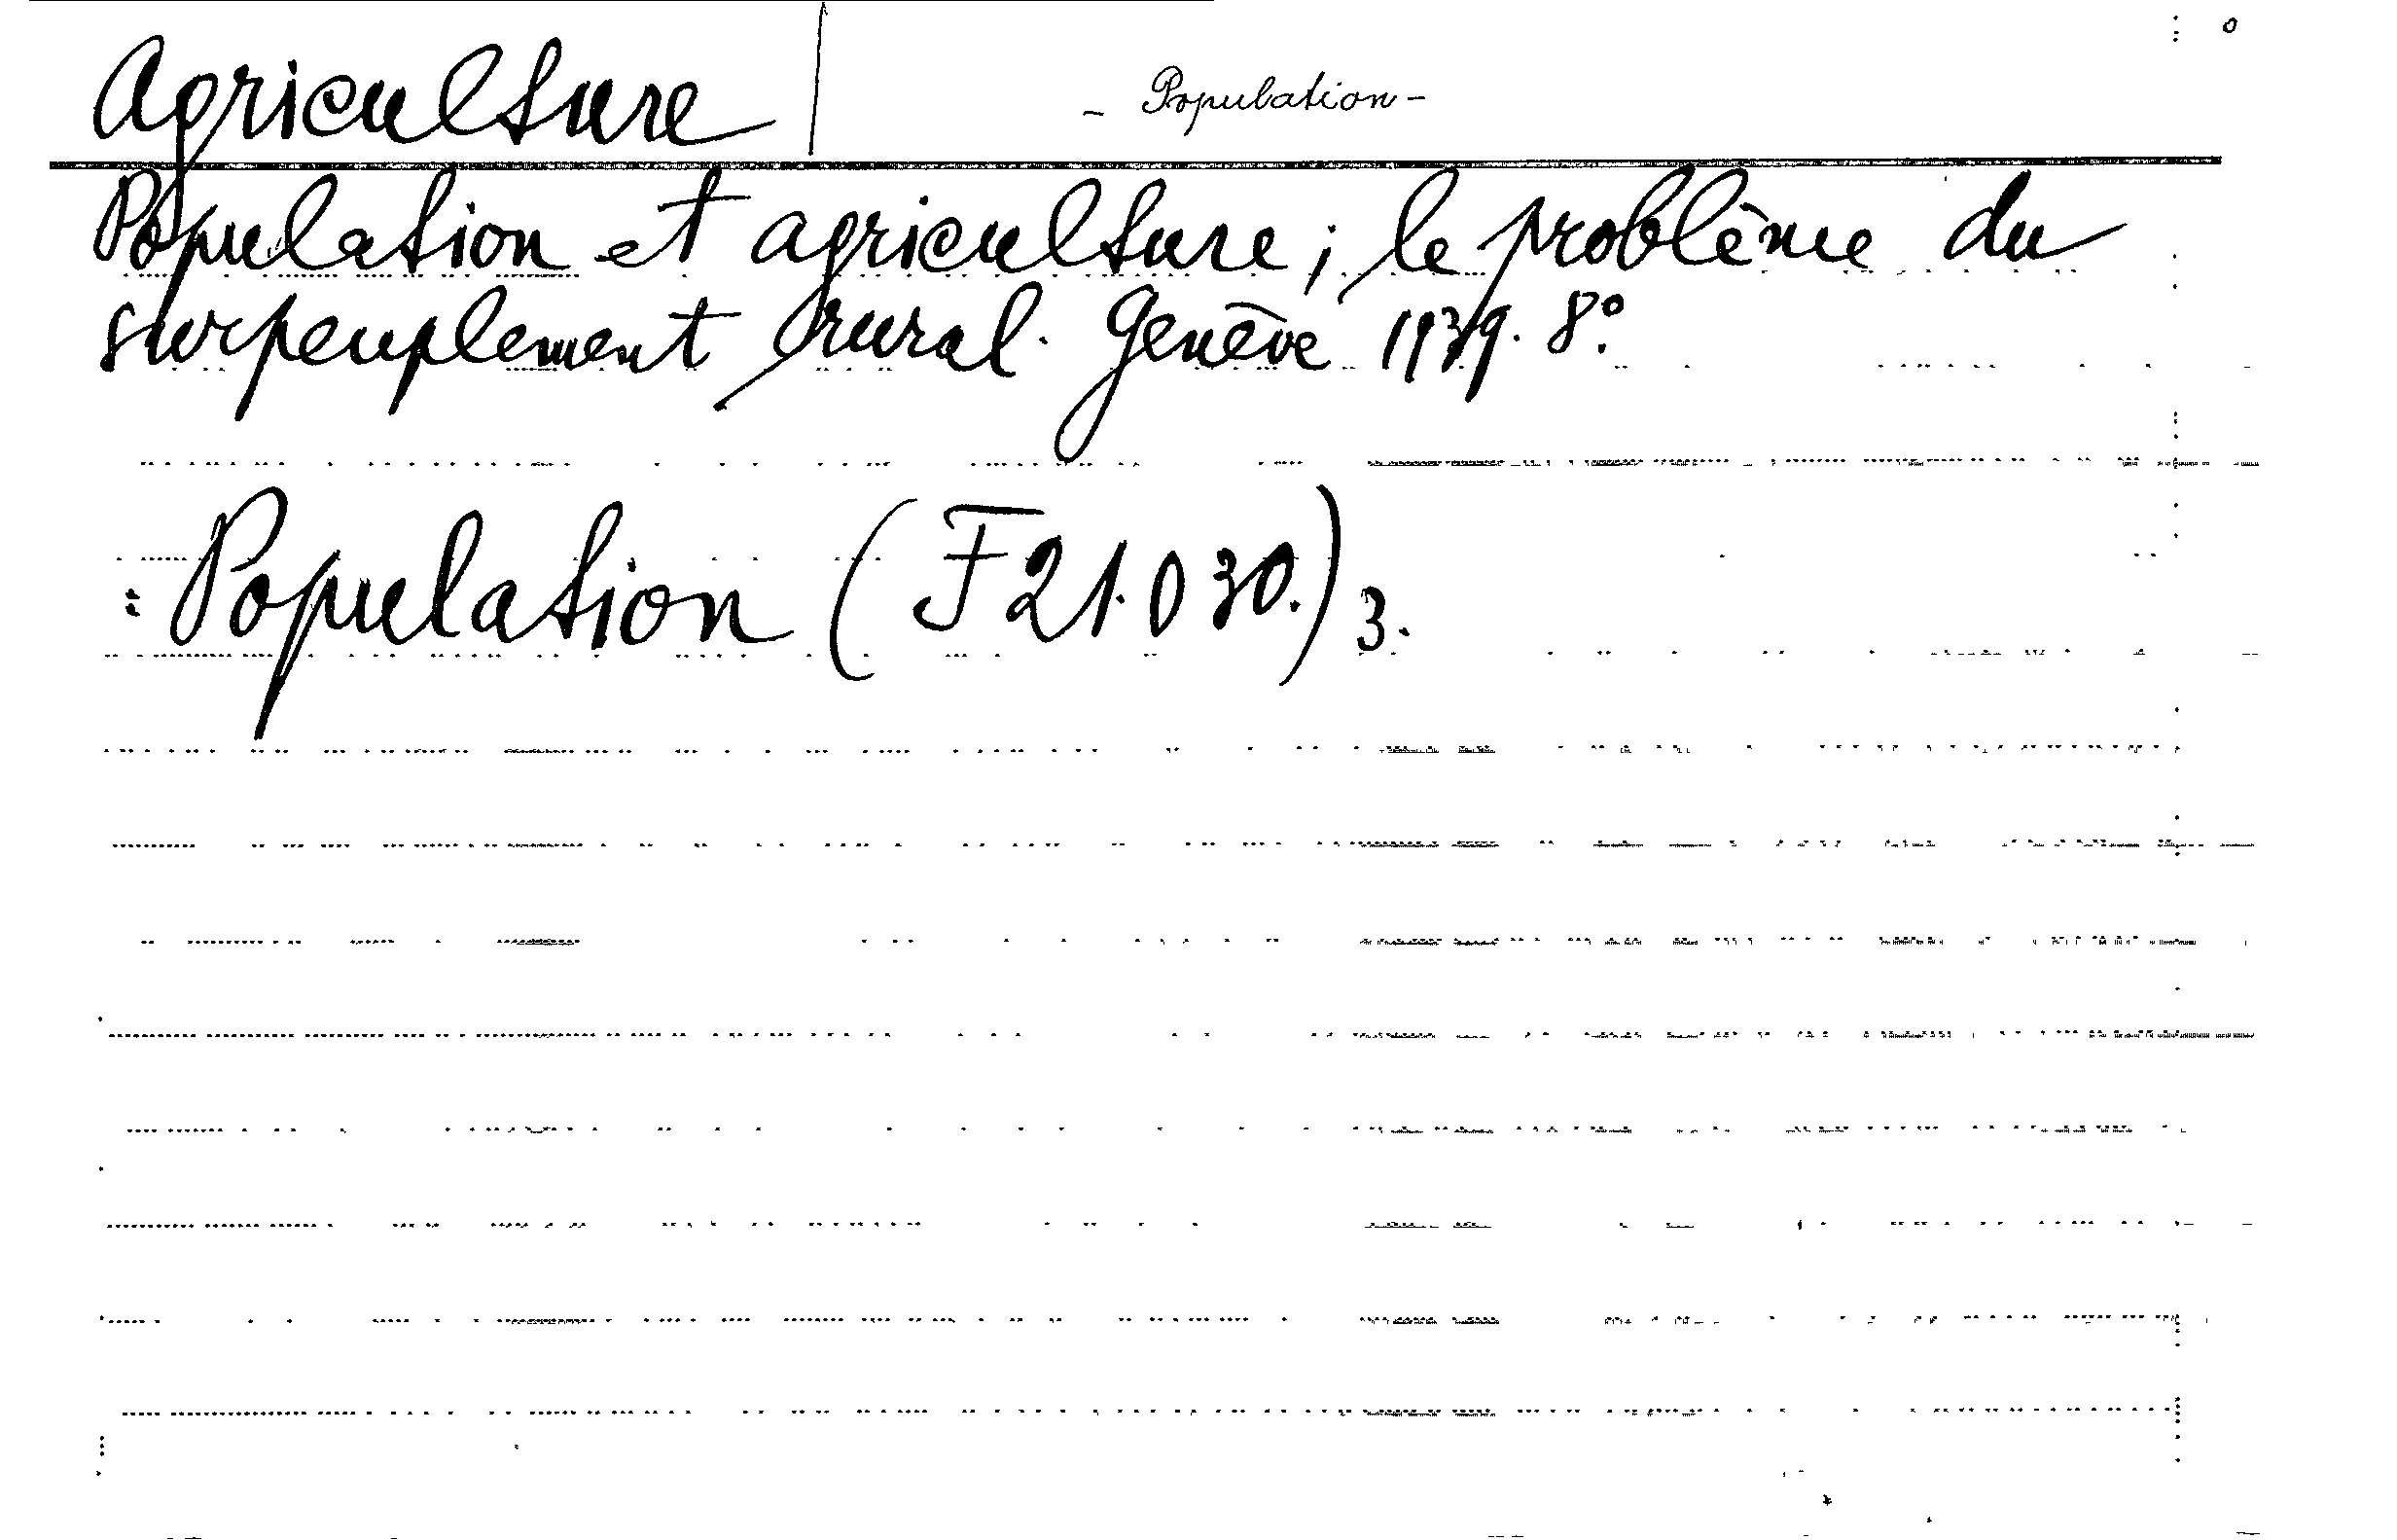 Agriculture - Population -
Population et agriculture; le problème du
surpeuplement rural. Genève 1939. 8°.
: Population (F21.030.) 3.